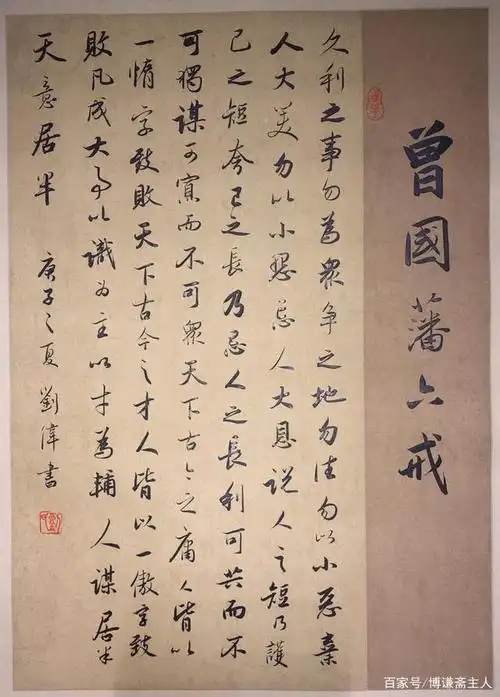 曾國藩六戒
久利之事勿為衆争之地勿往勿以小惡棄
人大美勿以小怨忘人大恩说人之短乃護
己之短夸己之長乃忌人之長利可共而不
可獨謀可寡而不可衆天下古今之庸人皆以
一惰字致敗天下古今之才人皆以一傲字致
敗凡成大事以識为主以才為輔人謀居半
天意居半 庚子之夏劉偉書
百家号/博谦斋主人